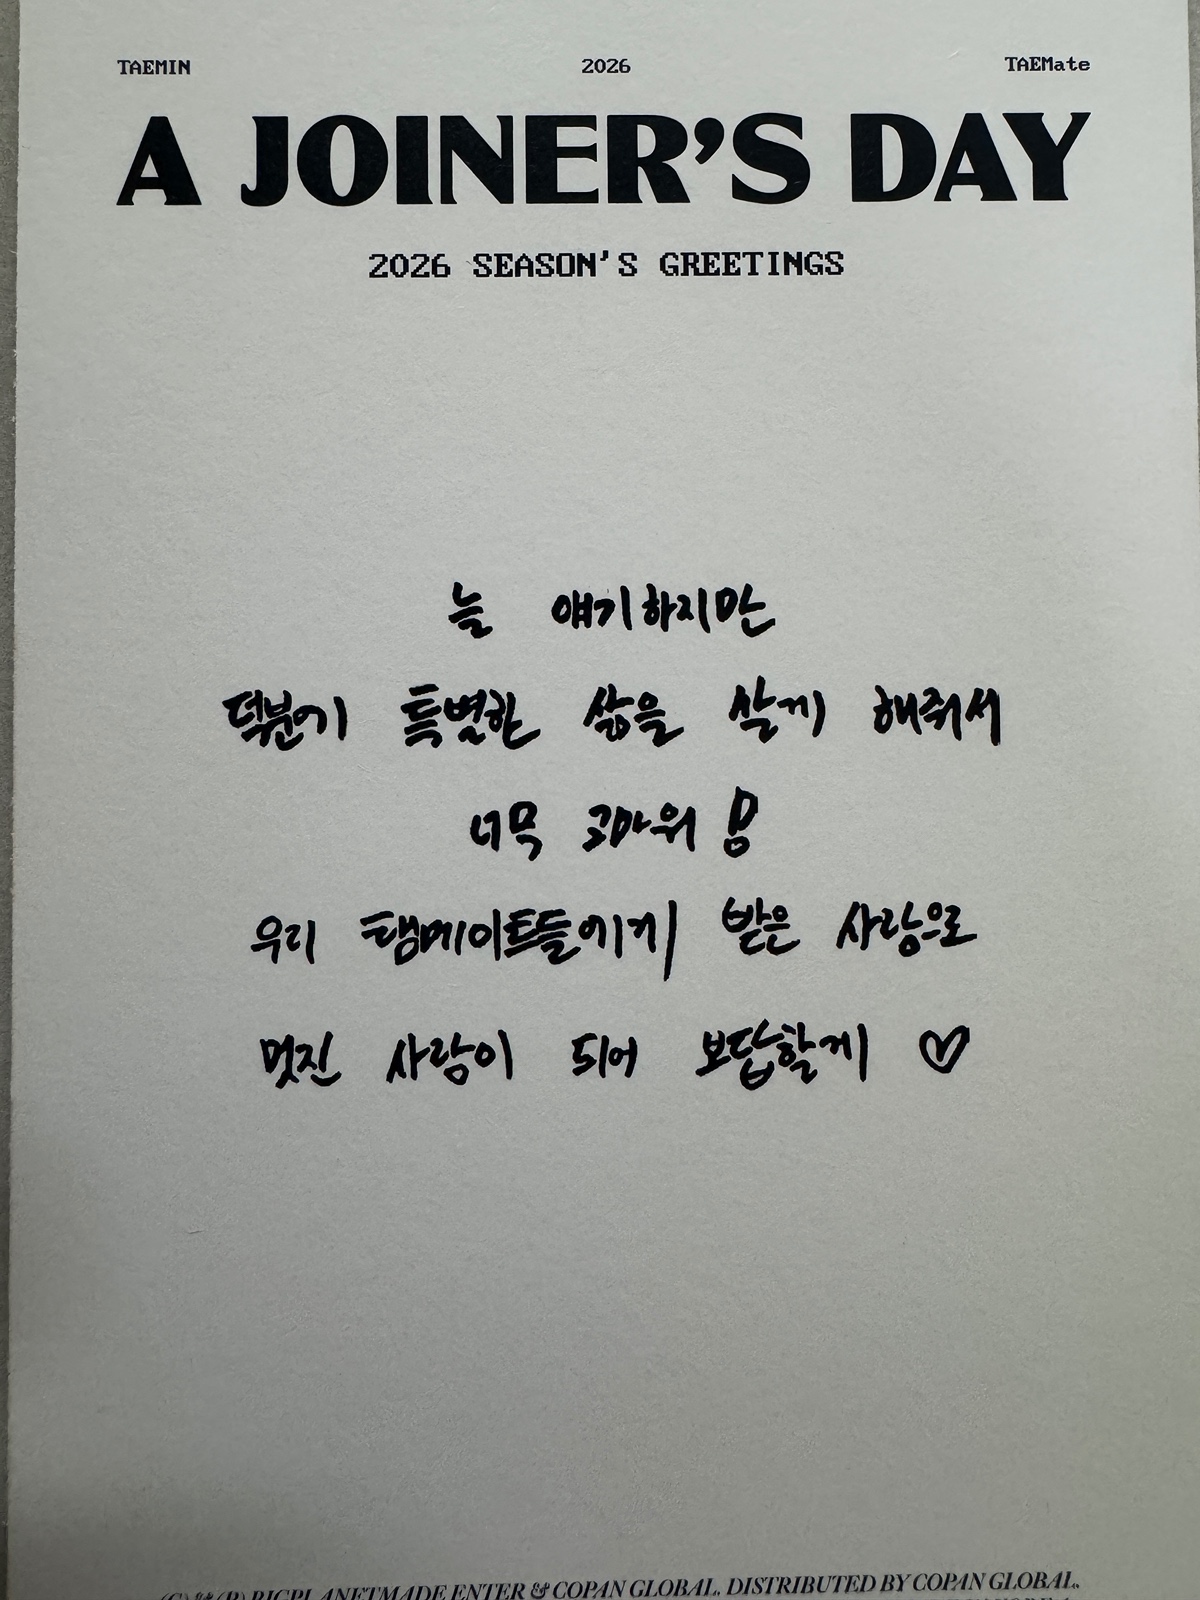 TAEMIN 2026 TAEMate
A JOINER'S DAY
2026 SEASON'S GREETINGS
늘 얘기하지만
덕분에 특별한 삶을 살게 해줘서
너무 고마워!
우리 탬메이트들에게 받은 사랑으로
멋진 사람이 되어 보답할게 ♡
(C) && (P) BIGPLANETMADE ENTER & COPAN GLOBAL. DISTRIBUTED BY COPAN GLOBAL.